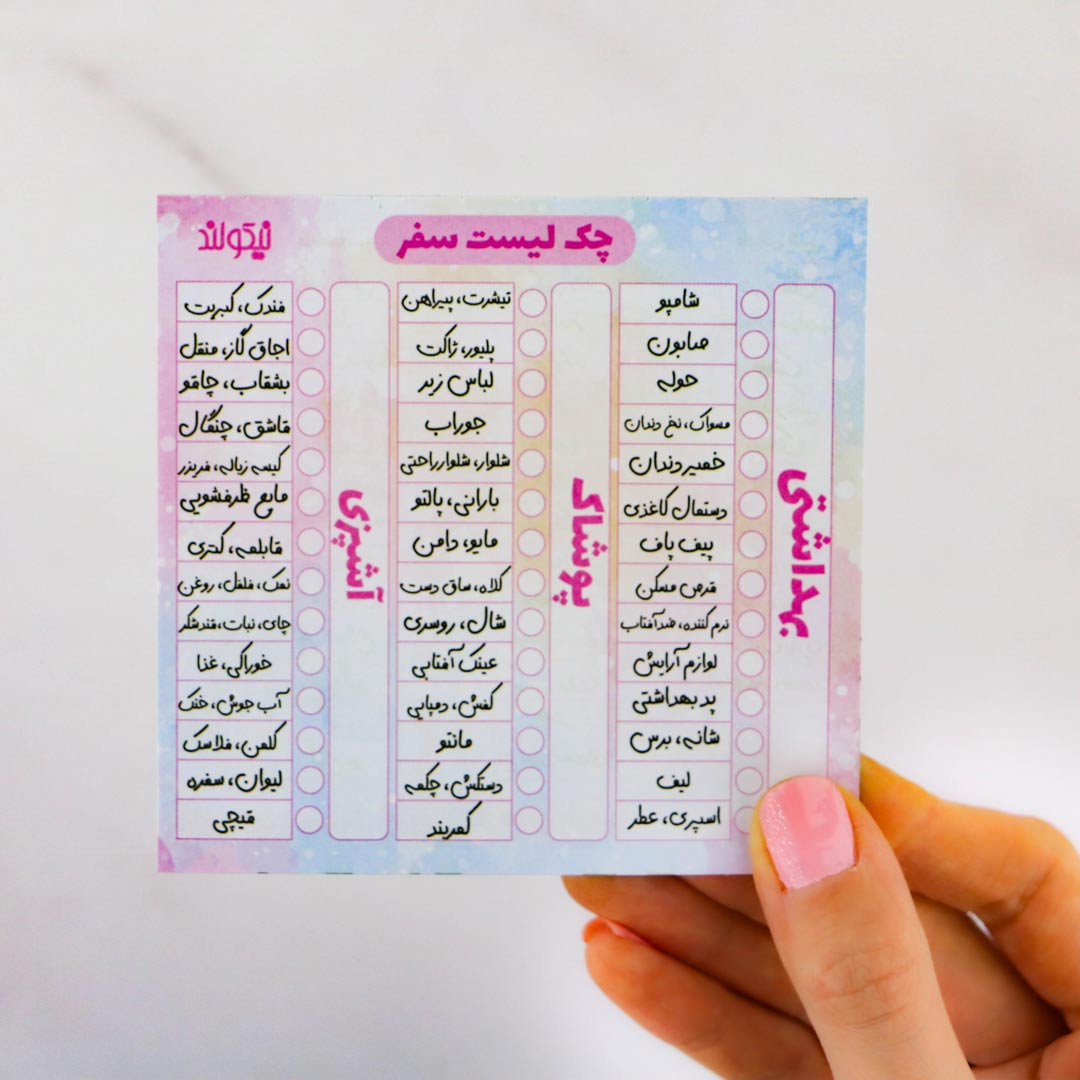 چک لیست سفر
نیکولند
بهداشتی
شامپو
صابون
حوله
مسواک، نخ دندان
خمیردندان
دستمال کاغذی
پیف پاف
قرص مسکن
نرم کننده، ضدآفتاب
لوازم آرایش
پد بهداشتی
شانه، برس
لیف
اسپری، عطر
پوشاک
تیشرت، پیراهن
پلیور، ژاکت
لباس زیر
جوراب
شلوار، شلوارراحتی
بارانی، پالتو
مایو، دامن
کلاه، ساق دست
شال، روسری
عینک آفتابی
کفش، دمپایی
مانتو
دستکش، چکمه
کمربند
آشپزی
فندک، کبریت
اجاق گاز، منقل
بشقاب، چاقو
قاشق، چنگال
کیسه زباله، فریزر
مایع ظرفشویی
قابلمه، کتری
نمک، فلفل، روغن
چای، نبات، قندشکر
خوراکی، غذا
آب جوش، خنک
کلمن، فلاسک
لیوان، سفره
قیچی